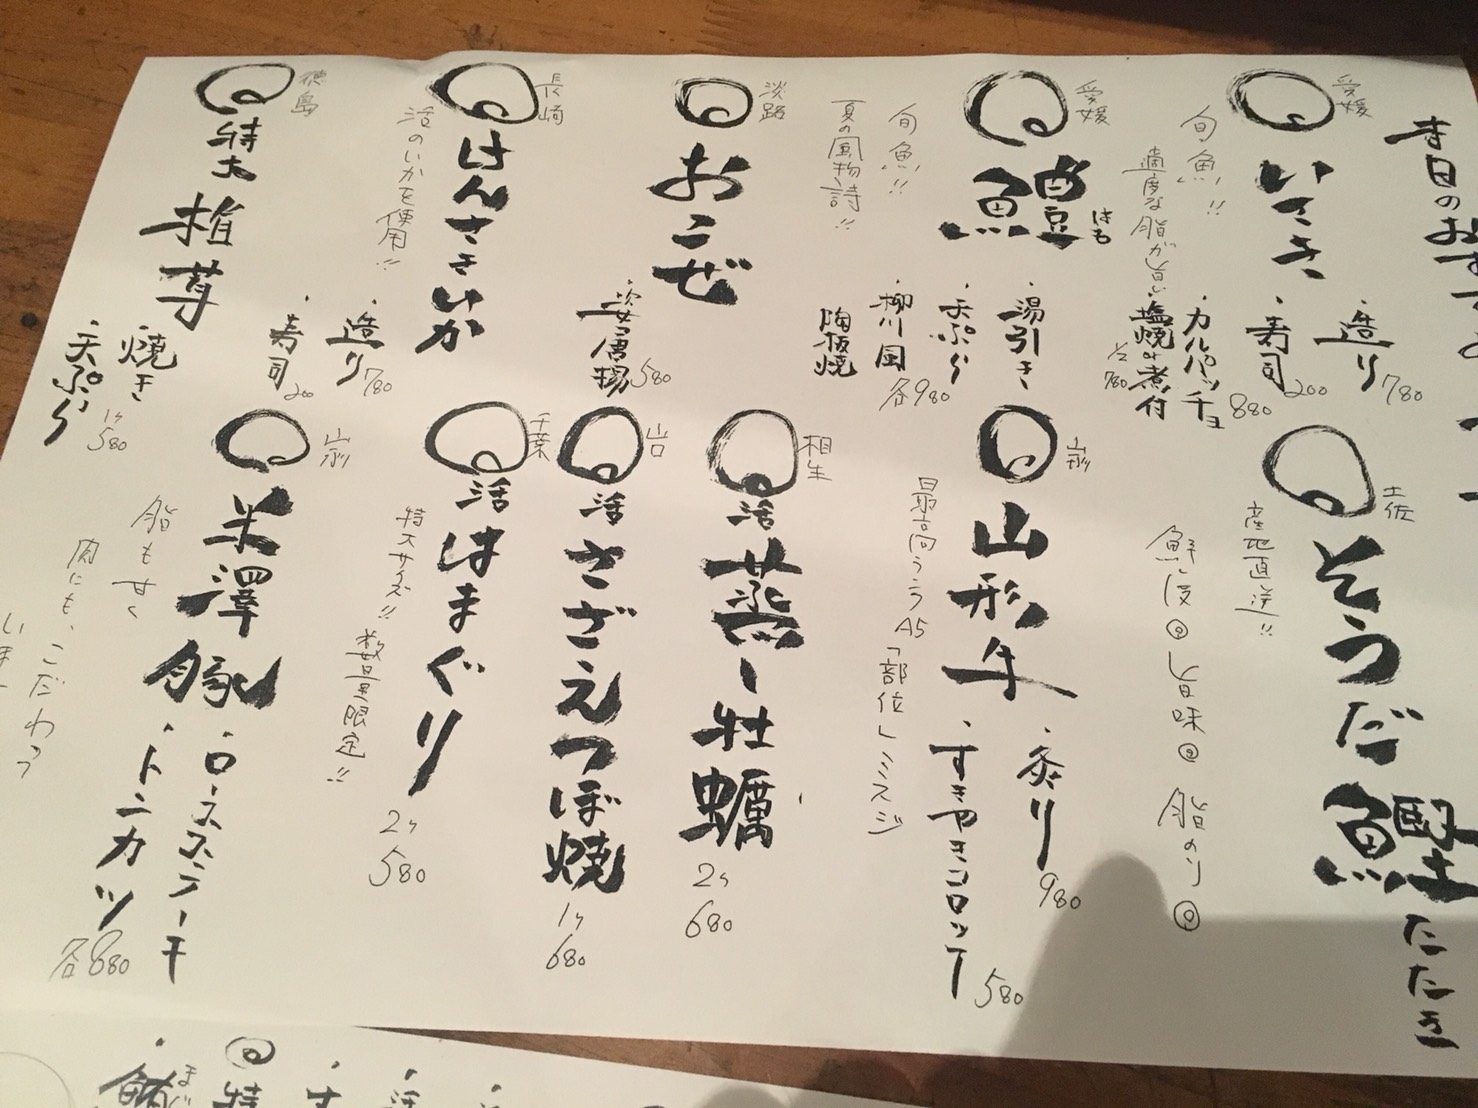 本日のおすすめ
愛媛
いさき
旬魚!!
適度な脂が旨い
・造り 780
・寿司 200
・カルパッチョ 880
・塩焼or煮付 1/2 780
愛媛
鱧 はも
旬魚!!
夏の風物詩!!
・湯引き
・天ぷら
・柳川風
陶板焼
各980
淡路
おこぜ
・姿唐揚 580
長崎
けんさきいか
活のいかを使用!!
・造り 780
・寿司 200
徳島
特大椎茸
・焼き
・天ぷら
1ケ 580
土佐
そうだ鰹たたき
産地直送!!
鮮度◎旨味◎脂のり◎
山形
山形牛
最高同ランクA5「部位」ミスジ
・炙り 980
・すきやきコロッケ 580
相生
活 蒸し牡蠣
2ケ
680
活 さざえつぼ焼
1ケ
680
千葉
活 はまぐり
特大サイズ!! 数量限定!!
2ケ
580
山形
米澤豚
脂も甘く
肉にも、こだわって
・ロースステーキ
・トンカツ
各880